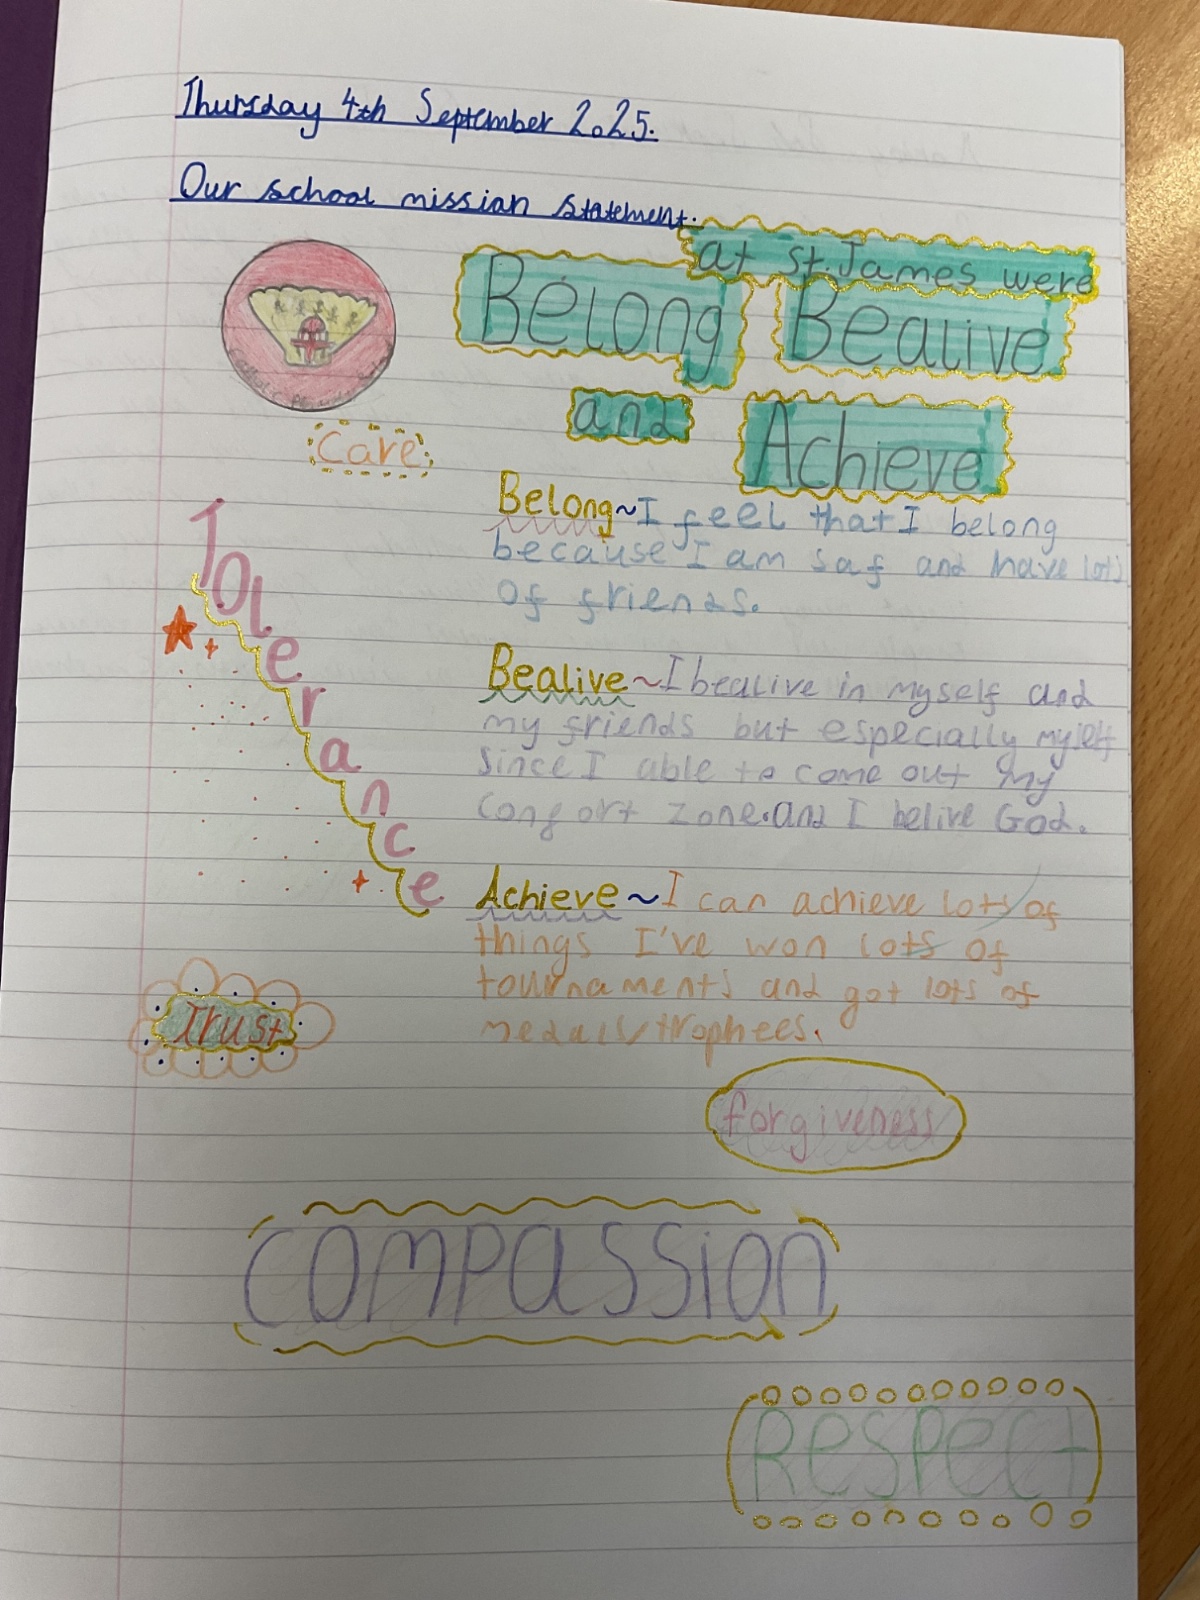 Thursday 4th September 2025.
Our school missian statement.
at st.James were
Belong Bealive
and Achieve
Care
Tolerance
Belong~I feel that I belong
because I am saf and have lots
of friends.
Bealive~I bealive in myself and
my friends but especially myself
since I able to come out my
confort zone.and I belive God.
Achieve~I can achieve lots of
things I've won lots of
tournaments and got lots of
medals/trophees.
Trust
forgiveness
compassion
Respect